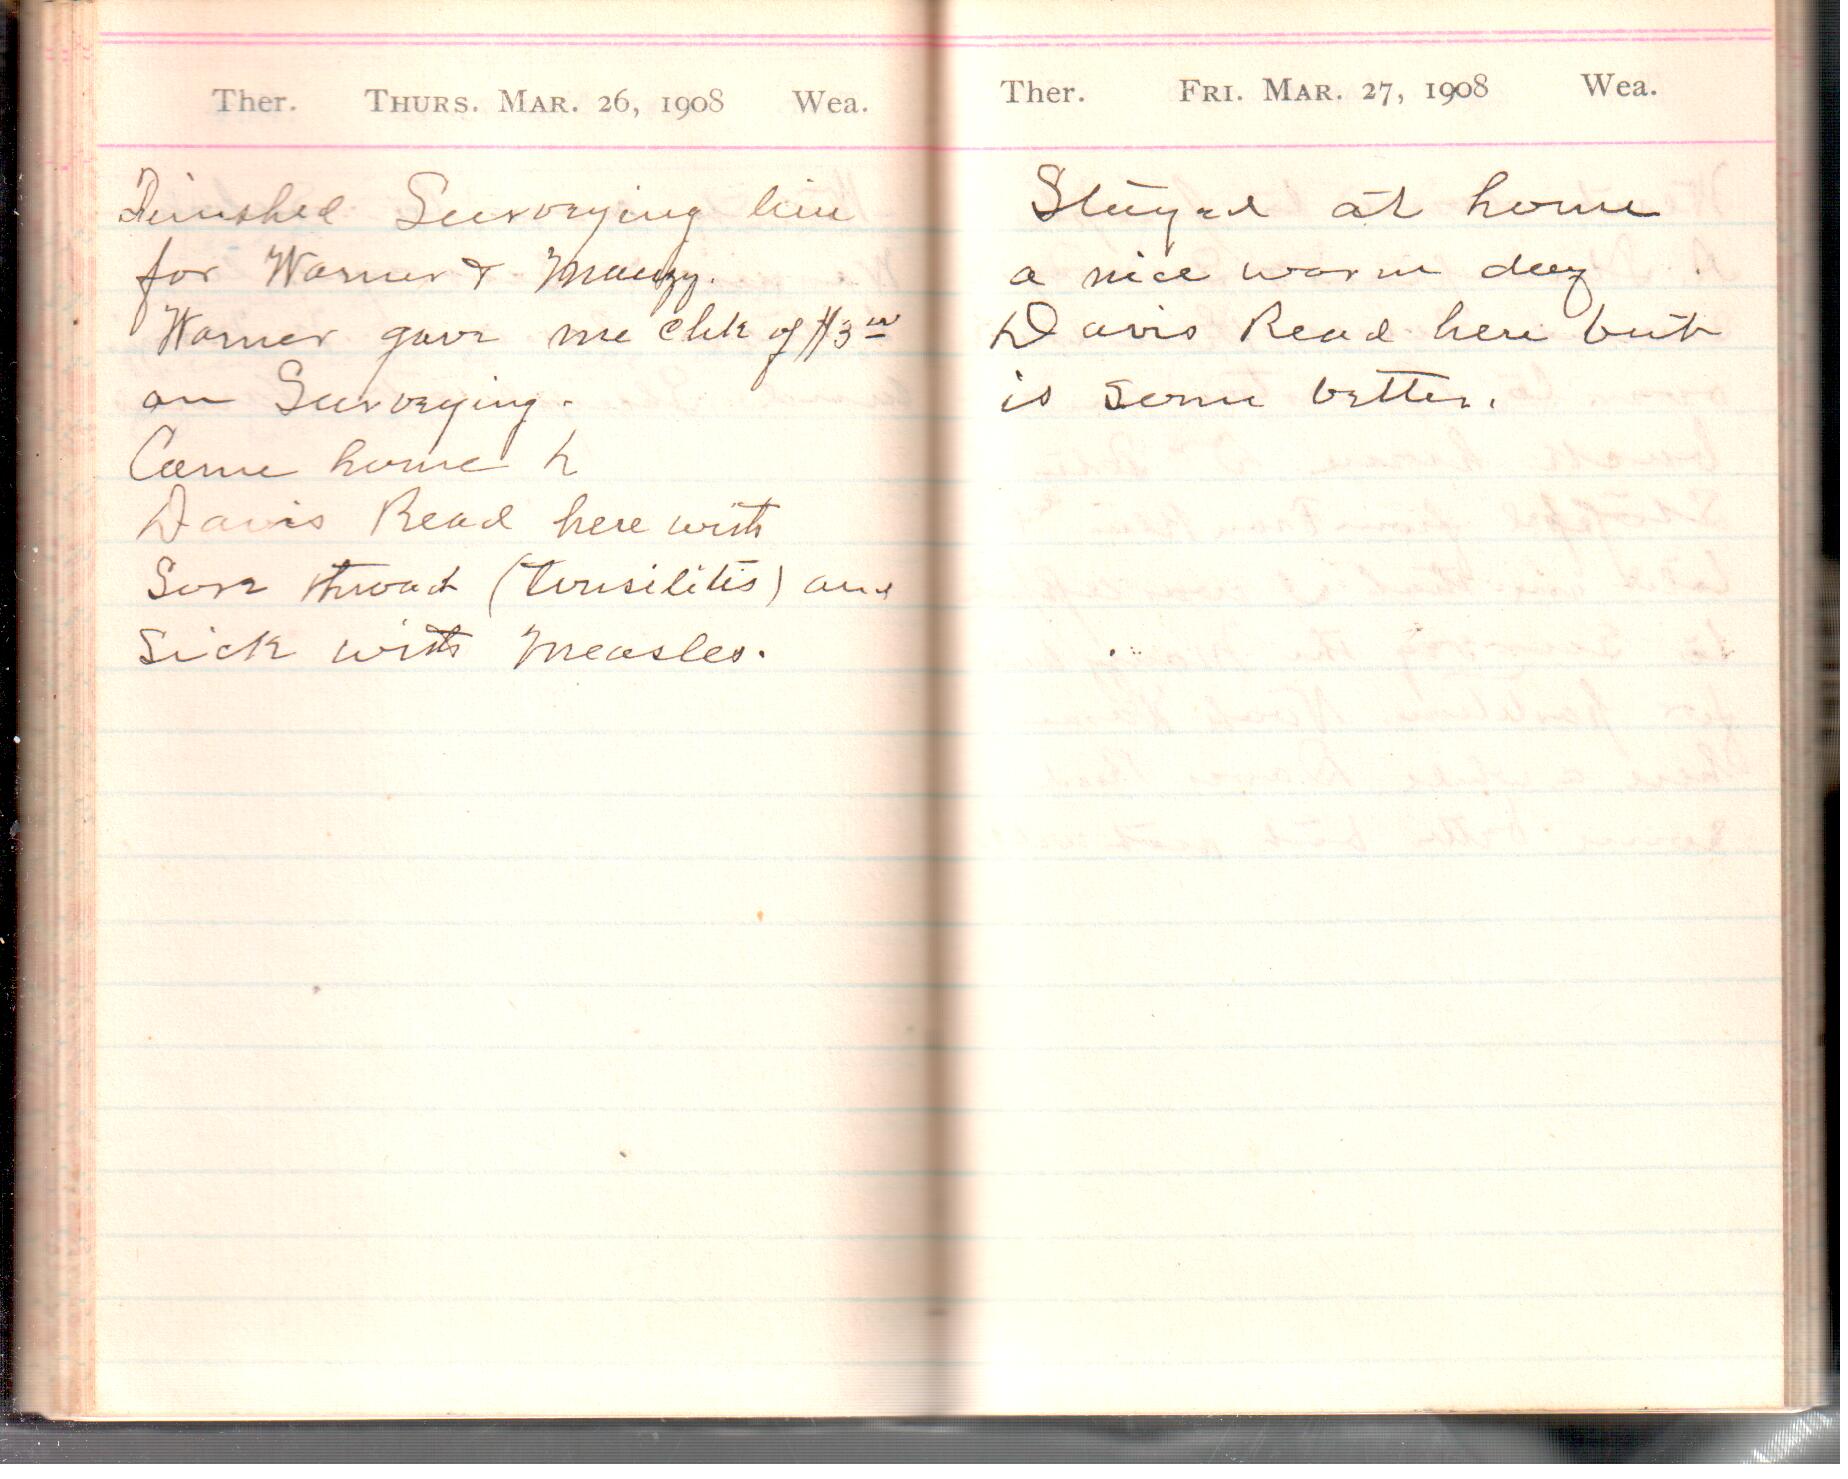 Ther. THURS. MAR. 26, 1908 Wea.
Finished Surveying line
for Warner & Mauzy.
Warner gave me Chk of $3 00
on Surveying.
Came home h
Davis Read here with
Sore throat (tonsilitis) and
Sick with measles.
Ther. FRI. MAR. 27, 1908 Wea.
Stayed at home
a nice warm day
Davis Read here but
is some better.